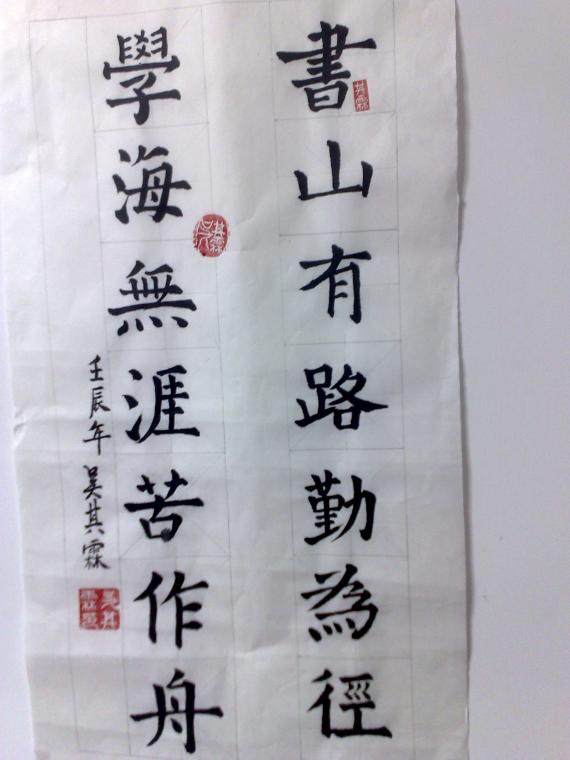 書山有路勤為徑
學海無涯苦作舟
壬辰年 吳其霖
其霖